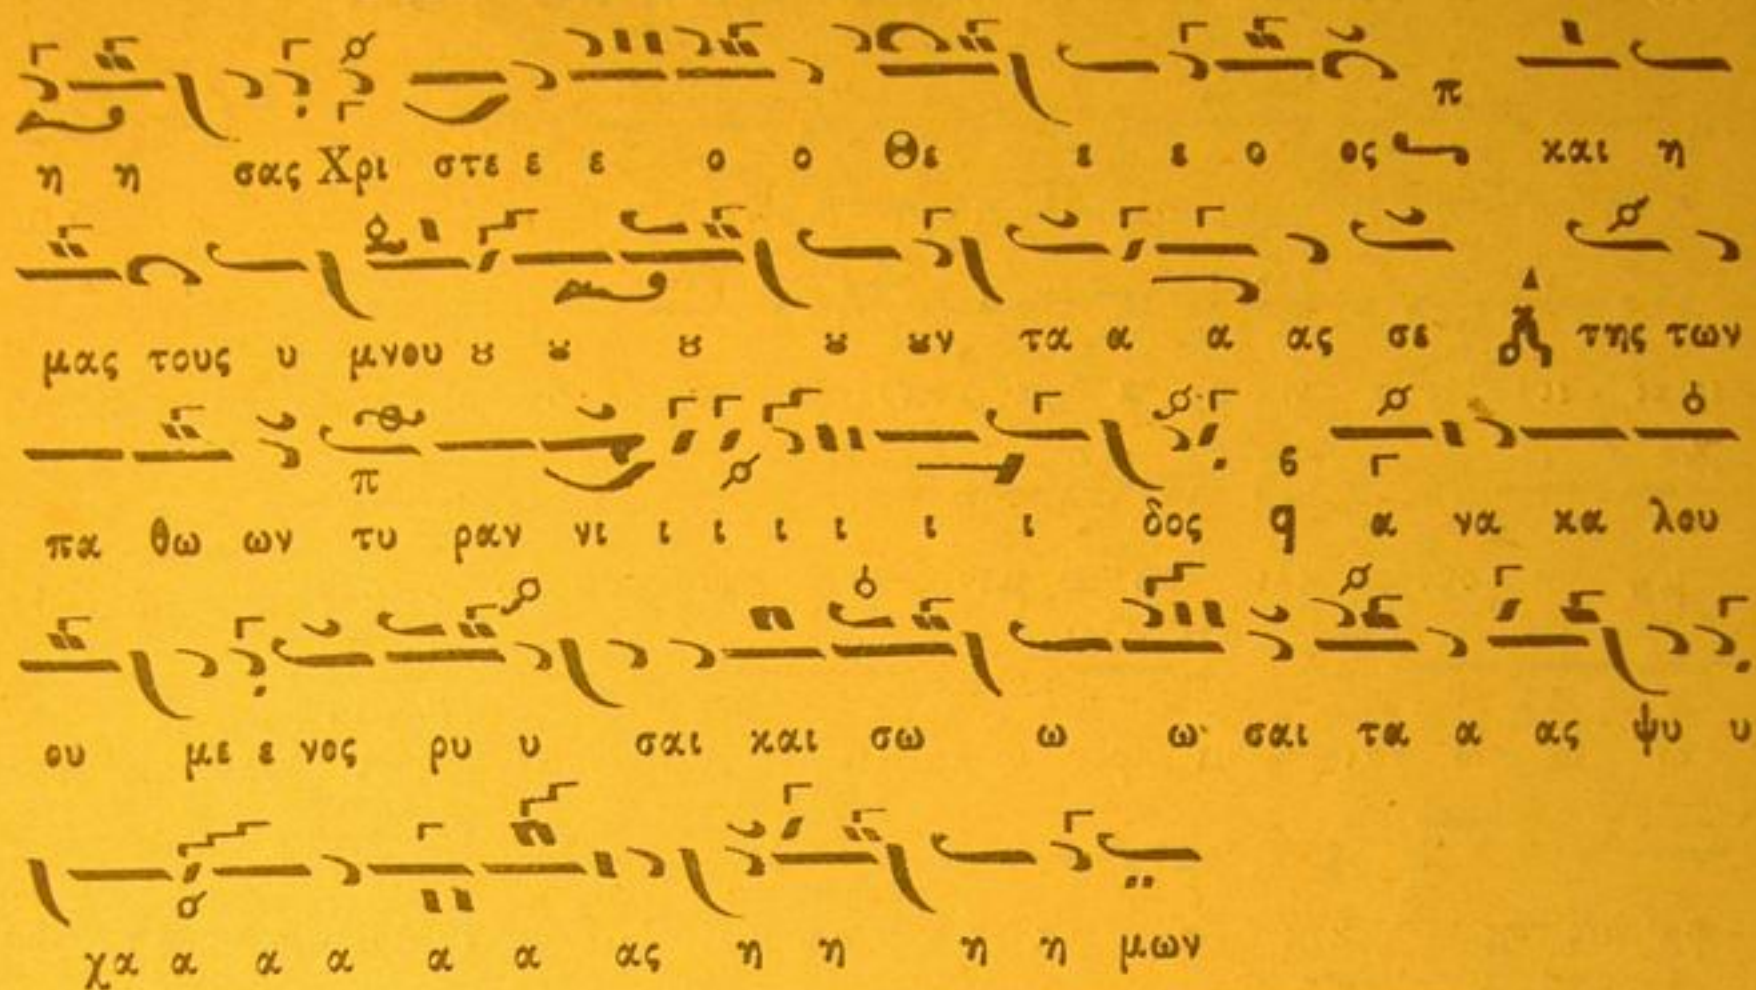 η η σας Χρι στε ε ε ο ο Θε ε ε ο ος και η
μας τους υ μνου ȣ ȣ ȣ ȣ ȣν τα α α ας σε της των
πα θω ων τυ ραν νι ι ι ι ι ι ι δος α να κα λου
ου με ε νος ρυ υ σαι και σω ω ω σαι τα α ας ψυ υ
χα α α α α α ας η η η η μων